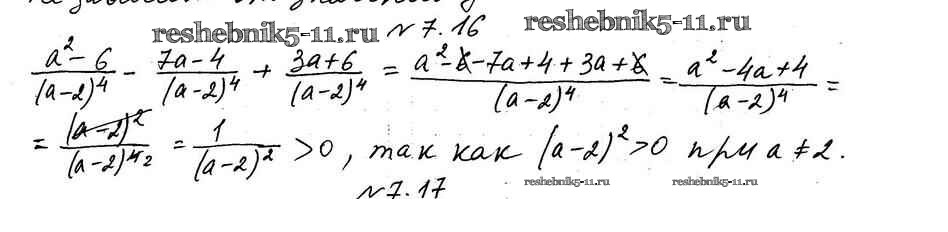 reshebnik5-11.ru N 7.16 reshebnik5-11.ru
(a² - 6)/(a-2)⁴ - (7a-4)/(a-2)⁴ + (3a+6)/(a-2)⁴ = (a² - 6 - 7a + 4 + 3a + 6)/(a-2)⁴ = (a² - 4a + 4)/(a-2)⁴ =
= (a-2)²/(a-2)⁴ ² = 1/(a-2)² > 0, так как (a-2)² > 0 при a ≠ 2.
N 7.17 reshebnik5-11.ru reshebnik5-11.ru